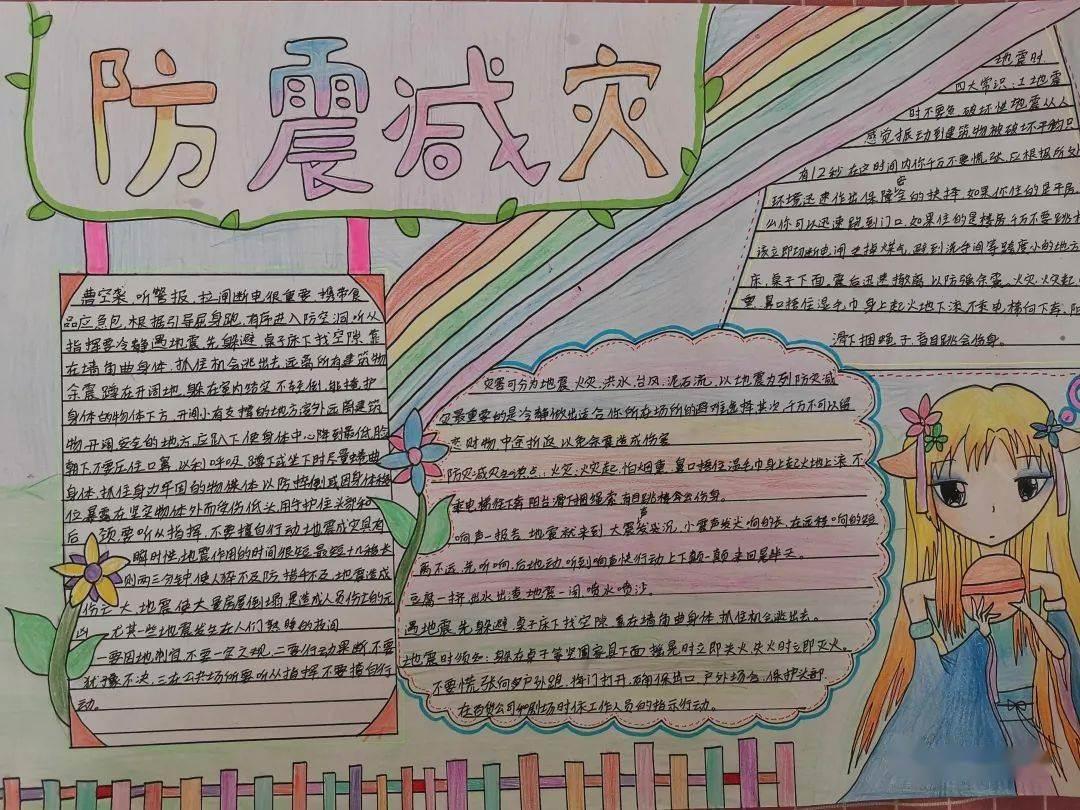 防震减灾
曹空袭,听警报,拉闸断电很重要,携带食
品应急包,根据引导屈身跑,有序进入防空洞,听从
指挥要冷静遇地震,先躲避,桌子床下找空隙,靠
在墙角曲身体,抓住机会逃出去,远离所有建筑物
余震蹲在开阔地,躲在室内结实不轻倒,能掩护
身体的物体下方,开间小有支撑的地方室外远离建筑
物,开阔安全的地方,应趴下使身体中心降到最低,脸
朝下不要压住口鼻,以利呼吸,蹲下或坐下时尽量蜷曲
身体,抓住身边牢固的物体以防摔倒或因身体移
位暴露在坚实物体外而受伤,低头用手护住头部和
后颈,要听从指挥,不要擅自行动,地震成灾具有
瞬时性,地震作用的时间很短,最短十几秒,长
则两三分钟,使人猝不及防,措手不及,地震造成
伤亡大,地震使大量房屋倒塌,是造成人员伤亡的元
凶,尤其一些地震发生在人们熟睡的夜间
一要因地制宜,不要一定之规,二要行动果断,不要
犹豫不决,三在公共场所要听从指挥,不要擅自行
动。
地震时
四大常识:1.地震
时不要急,破坏性地震从人
感觉振动到建筑物被破坏平均只
有12秒,在这时间内你千万不要慌张,应根据所处
环境迅速作出保障安全的抉择,如果你住的是平房,
么你可以迅速跑到门口,如果住的是楼房千万不要跳
该立即切断电闸,关掉煤气,躲到洗手间等跨度小的地方
床,桌子下面,震后迅速撤离,以防强余震,火灾,火灾起,
重,鼻口捂住湿毛巾身上起火地下滚,不乘电梯向下奔,阳
滑下捆绳子,盲目跳会伤身。
灾害可分为地震,火灾,洪水,台风,泥石流,以地震为列防灾减
灾最重要的是冷静做出适合你所在场所的避难选择其次,千万不可以留
恋财物中余折返,以免余震造成伤害
防灾减灾的要点:火灾:火灾起,怕烟重,鼻口捂住湿毛巾身上起火地上滚,不
乘电梯往下奔,阳台滑下捆绳索,盲目跳楼会伤身。
响声一报告,地震就来到,大震声发沉,小震声发尖,响的长,在远程,响的短,
离不远,先听响,后地动,听到响声快行动,上下颠一颠,来回晃半天。
豆腐一挤,出水出渣,地震一闹,喷水喷沙。
遇地震,先躲避,桌子床下找空隙,靠在墙角曲身体,抓住机会逃出去。
地震时须知:躲在桌子等坚固家具下面,摇晃时立即关火,失火时立即灭火。
不要慌张向户外跑,将门打开,确保出口,户外场合,保护头部
在百货公司和剧场时依工作人员的指示行动。